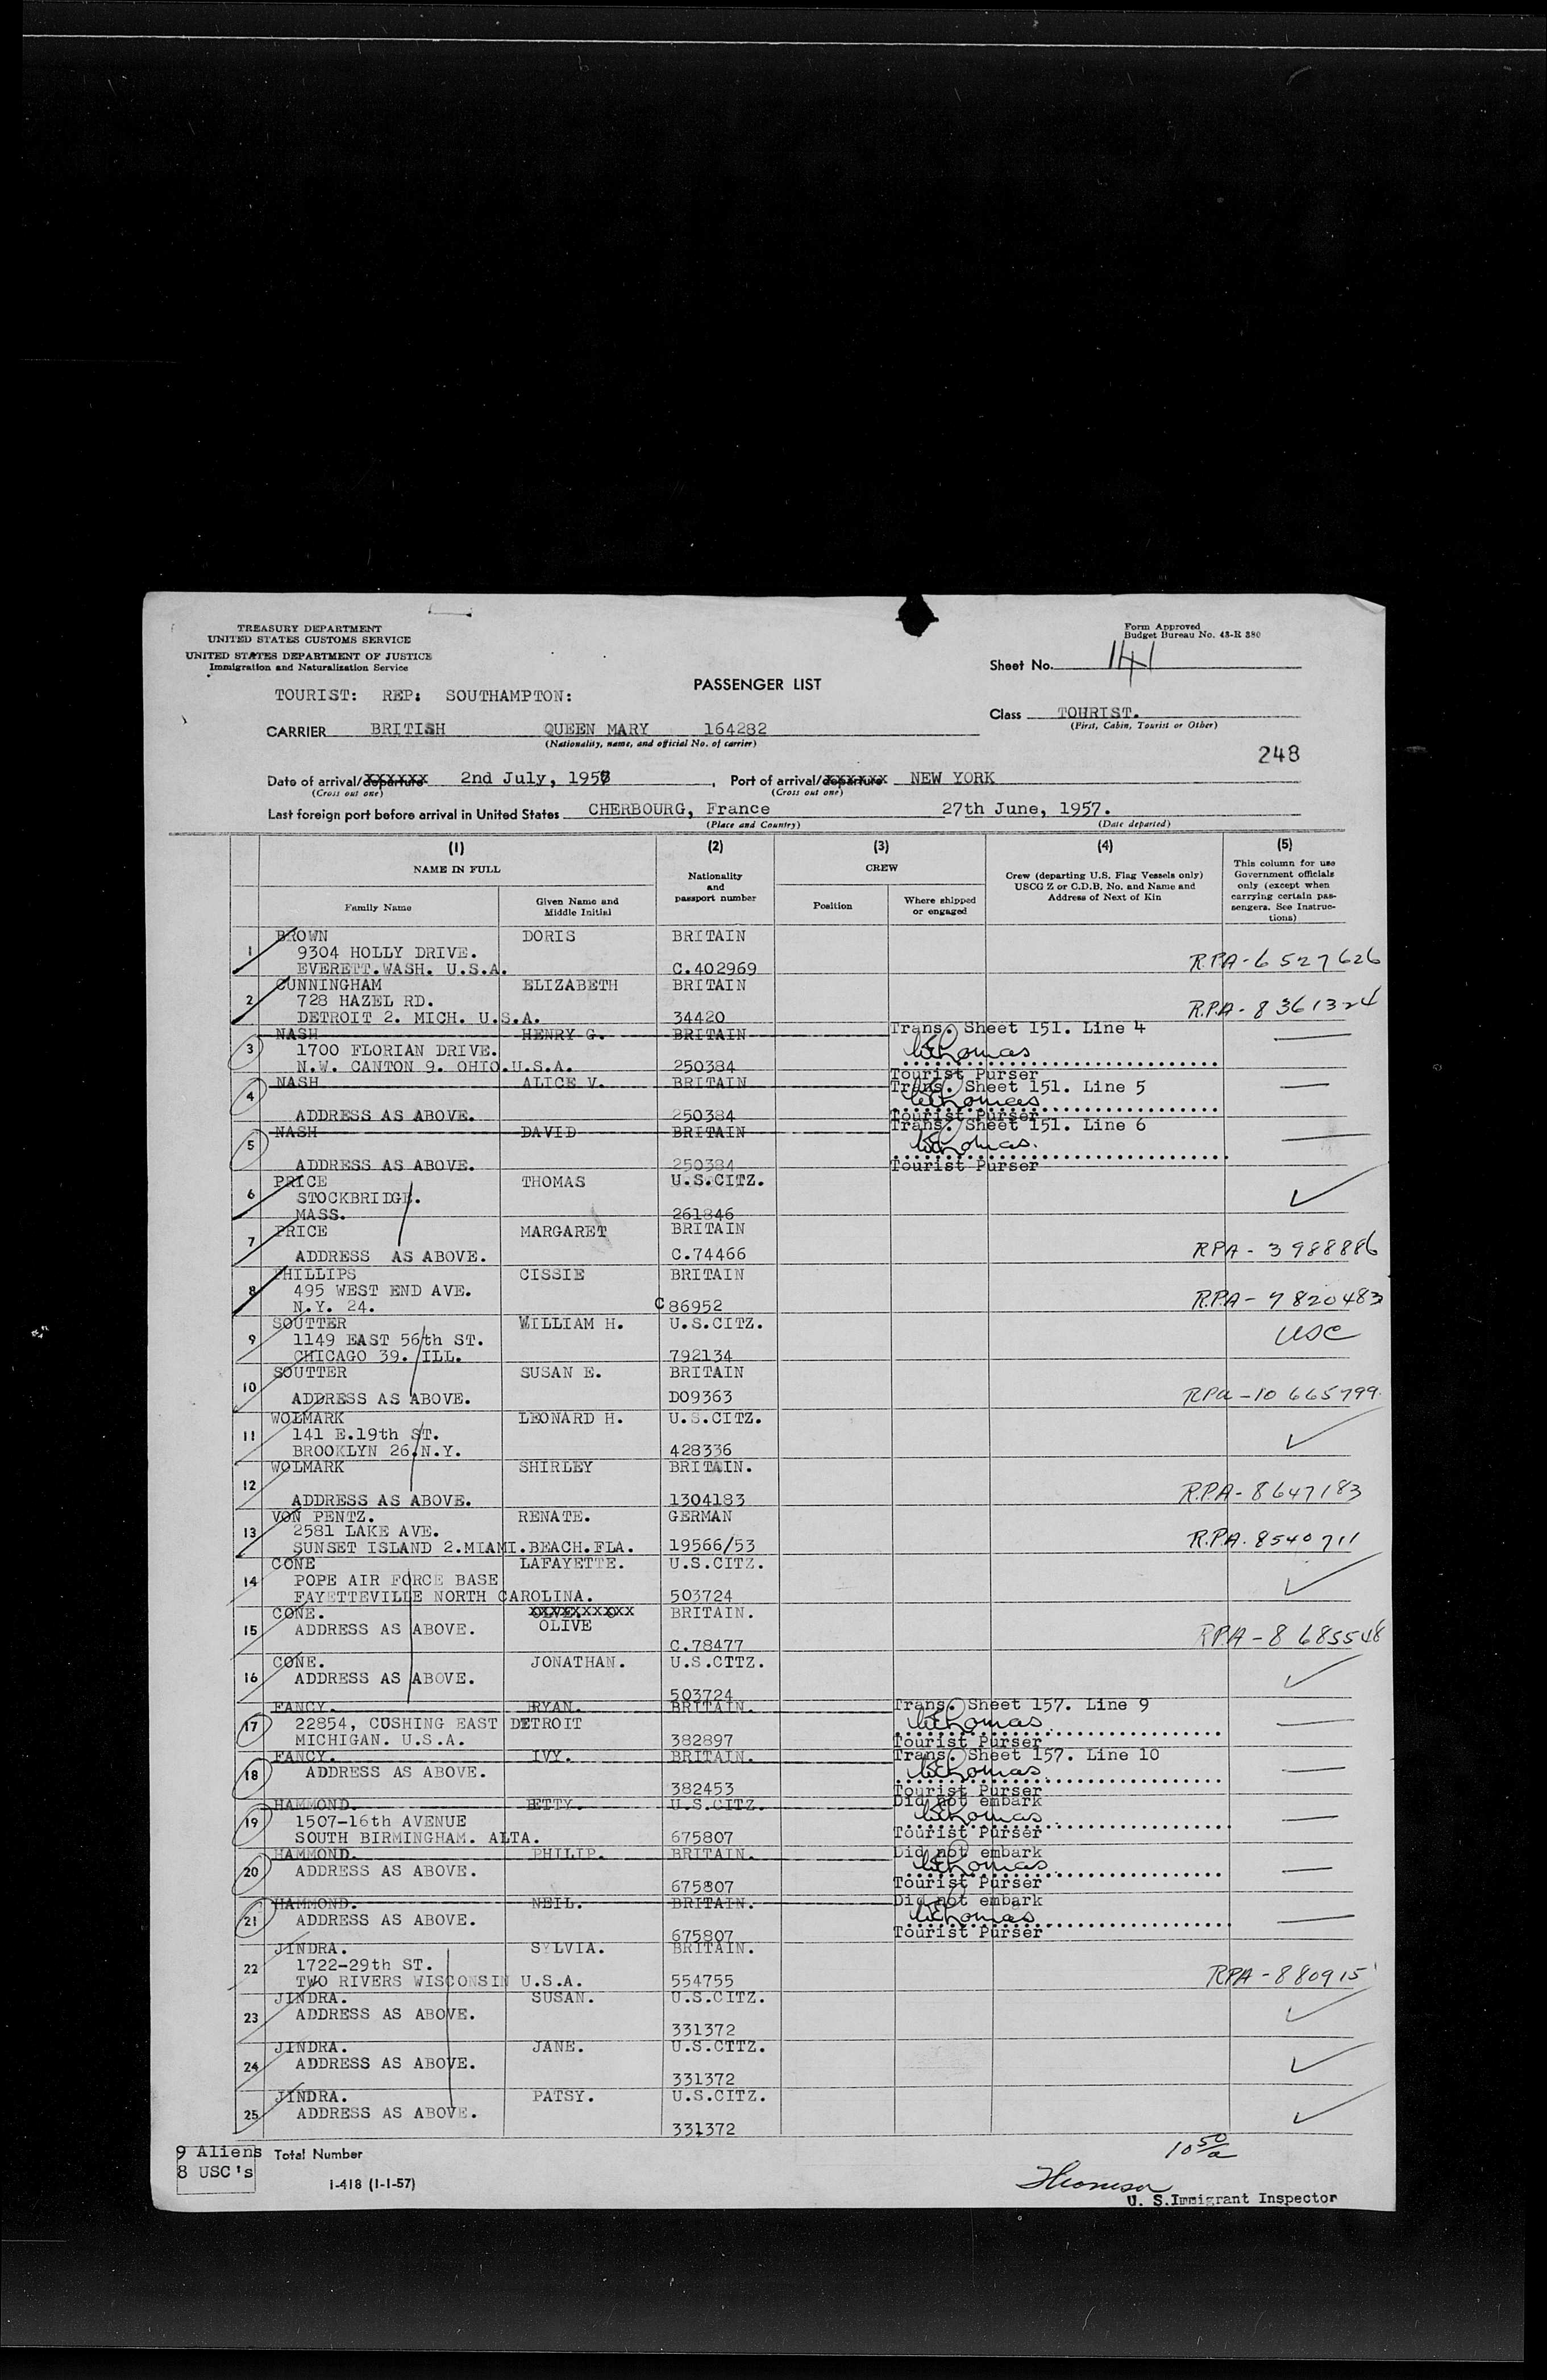 TREASURY DEPARTMENT
UNITED STATES CUSTOMS SERVICE
UNITED STATES DEPARTMENT OF JUSTICE
Immigration and Naturalization Service
Form Approved
Budget Bureau No. 43-R 380
Sheet No. 141
PASSENGER LIST
TOURIST: REP: SOUTHAMPTON:
Class TOURIST.
(First, Cabin, Tourist or Other)
CARRIER BRITISH QUEEN MARY 164282
(Nationality, name, and official No. of carrier)
248
Date of arrival/departure 2nd July, 1957, Port of arrival/departure NEW YORK
(Cross out one) (Cross out one)
Last foreign port before arrival in United States CHERBOURG, France 27th June, 1957.
(Place and Country) (Date departed)
(1) (2) (3) (4) (5)
NAME IN FULL
Family Name
Given Name and Middle Initial
Nationality and passport number
CREW
Position
Where shipped or engaged
Crew (departing U.S. Flag Vessels only) USCG Z or C.D.B. No. and Name and Address of Next of Kin
This column for use Government officials only (except when carrying certain passengers. See Instructions)
1 BROWN DORIS BRITAIN
9304 HOLLY DRIVE.
EVERETT.WASH. U.S.A. C.402969 RPA-6 527626
2 CUNNINGHAM ELIZABETH BRITAIN
728 HAZEL RD.
DETROIT 2. MICH. U.S.A. 34420 RPA-8 361324
3 NASH HENRY G. BRITAIN Trans. Sheet 151. Line 4
1700 FLORIAN DRIVE.
N.W. CANTON 9. OHIO.U.S.A. 250384 Tourist Purser
4 NASH ALICE V. BRITAIN Trans. Sheet 151. Line 5
ADDRESS AS ABOVE. 250384 Tourist Purser
5 NASH DAVID BRITAIN Trans. Sheet 151. Line 6
ADDRESS AS ABOVE. 250384 Tourist Purser
6 PRICE THOMAS U.S.CITZ.
STOCKBRIDGE.
MASS. 261846
7 PRICE MARGARET BRITAIN
ADDRESS AS ABOVE. C.74466 RPA - 3988886
8 PHILLIPS CISSIE BRITAIN
495 WEST END AVE.
N.Y. 24. C86952 RPA - 7 820483
9 SOUTTER WILLIAM H. U.S.CITZ. USC
1149 EAST 56/th ST.
CHICAGO 39. ILL. 792134
10 SOUTTER SUSAN E. BRITAIN
ADDRESS AS ABOVE. D09363 RPA -10 665799
11 WOLMARK LEONARD H. U.S.CITZ.
141 E.19th ST.
BROOKLYN 26.N.Y. 428336
12 WOLMARK SHIRLEY BRITAIN.
ADDRESS AS ABOVE. 1304183 RPA-8647183
13 VON PENTZ. RENATE. GERMAN
2581 LAKE AVE.
SUNSET ISLAND 2.MIAMI.BEACH.FLA. 19566/53 RPA. 8540711
14 CONE LAFAYETTE. U.S.CITZ.
POPE AIR FORCE BASE
FAYETTEVILLE NORTH CAROLINA. 503724
15 CONE. BRITAIN.
ADDRESS AS ABOVE. OLIVE
C.78477 RPA-8 685548
16 CONE. JONATHAN. U.S.CTTZ.
ADDRESS AS ABOVE.
503724
17 FANCY. RYAN. BRITAIN. Trans. Sheet 157. Line 9
22854, CUSHING EAST DETROIT
MICHIGAN. U.S.A. 382897 Tourist Purser
18 FANCY. IVY. BRITAIN. Trans. Sheet 157. Line 10
ADDRESS AS ABOVE.
382453 Tourist Purser
19 HAMMOND. BETTY. U.S.CITZ. Did not embark
1507-16th AVENUE
SOUTH BIRMINGHAM. ALTA. 675807 Tourist Purser
20 HAMMOND. PHILIP. BRITAIN. Did not embark
ADDRESS AS ABOVE.
675807 Tourist Purser
21 HAMMOND. NEIL. BRITAIN. Did not embark
ADDRESS AS ABOVE.
675807 Tourist Purser
22 JINDRA. SYLVIA. BRITAIN.
1722-29th ST.
TWO RIVERS WISCONSIN U.S.A. 554755 RPA-880915
23 JINDRA. SUSAN. U.S.CITZ.
ADDRESS AS ABOVE.
331372
24 JINDRA. JANE. U.S.CTTZ.
ADDRESS AS ABOVE.
331372
25 JINDRA. PATSY. U.S.CITZ.
ADDRESS AS ABOVE.
331372
9 Aliens Total Number
8 USC's
I-418 (1-1-57)
U. S.Immigrant Inspector